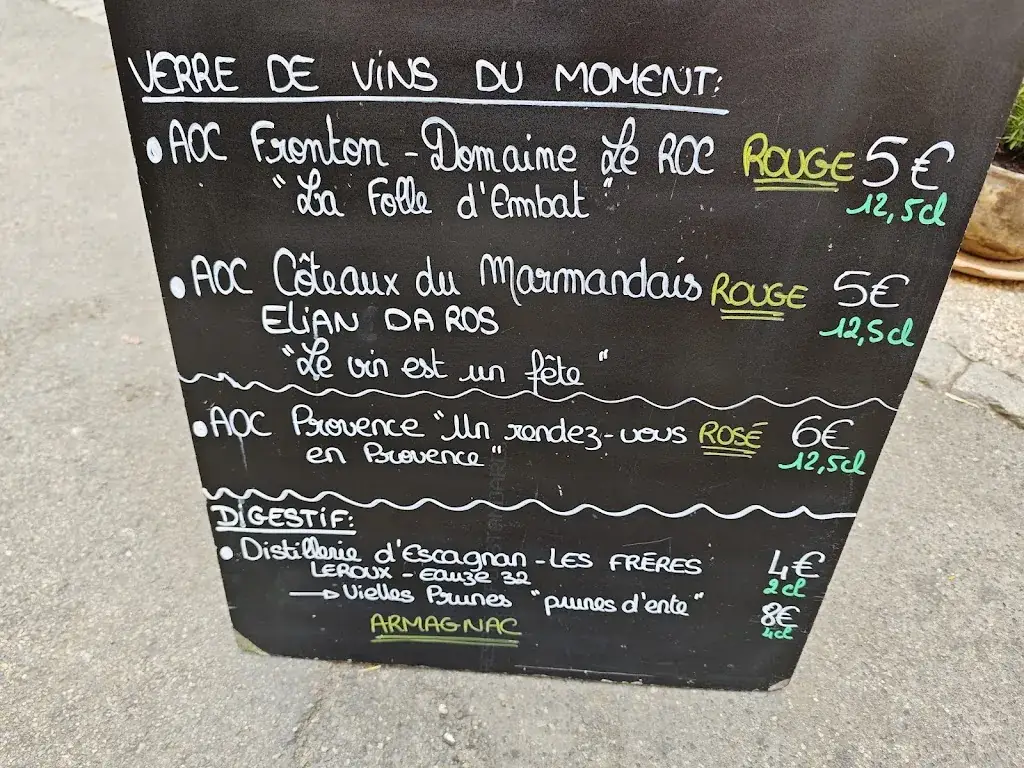 VERRE DE VINS DU MOMENT:
• AOC Fronton - Domaine Le ROC ROUGE 5€
"La Folle d'Embat" 12,5cl
• AOC Côteaux du Marmandais ROUGE 5€
ELIAN DA ROS 12,5cl
"Le vin est un fête"
• AOC Provence "Un rendez-vous ROSÉ 6€
en Provence" 12,5cl
DIGESTIF:
• Distillerie d'Escagnan - LES FRÉRES 4€
LEROUX - Eauze 32 2cl
→ Vielles Prunes "prunes d'ente" 8€
ARMAGNAC 4cl